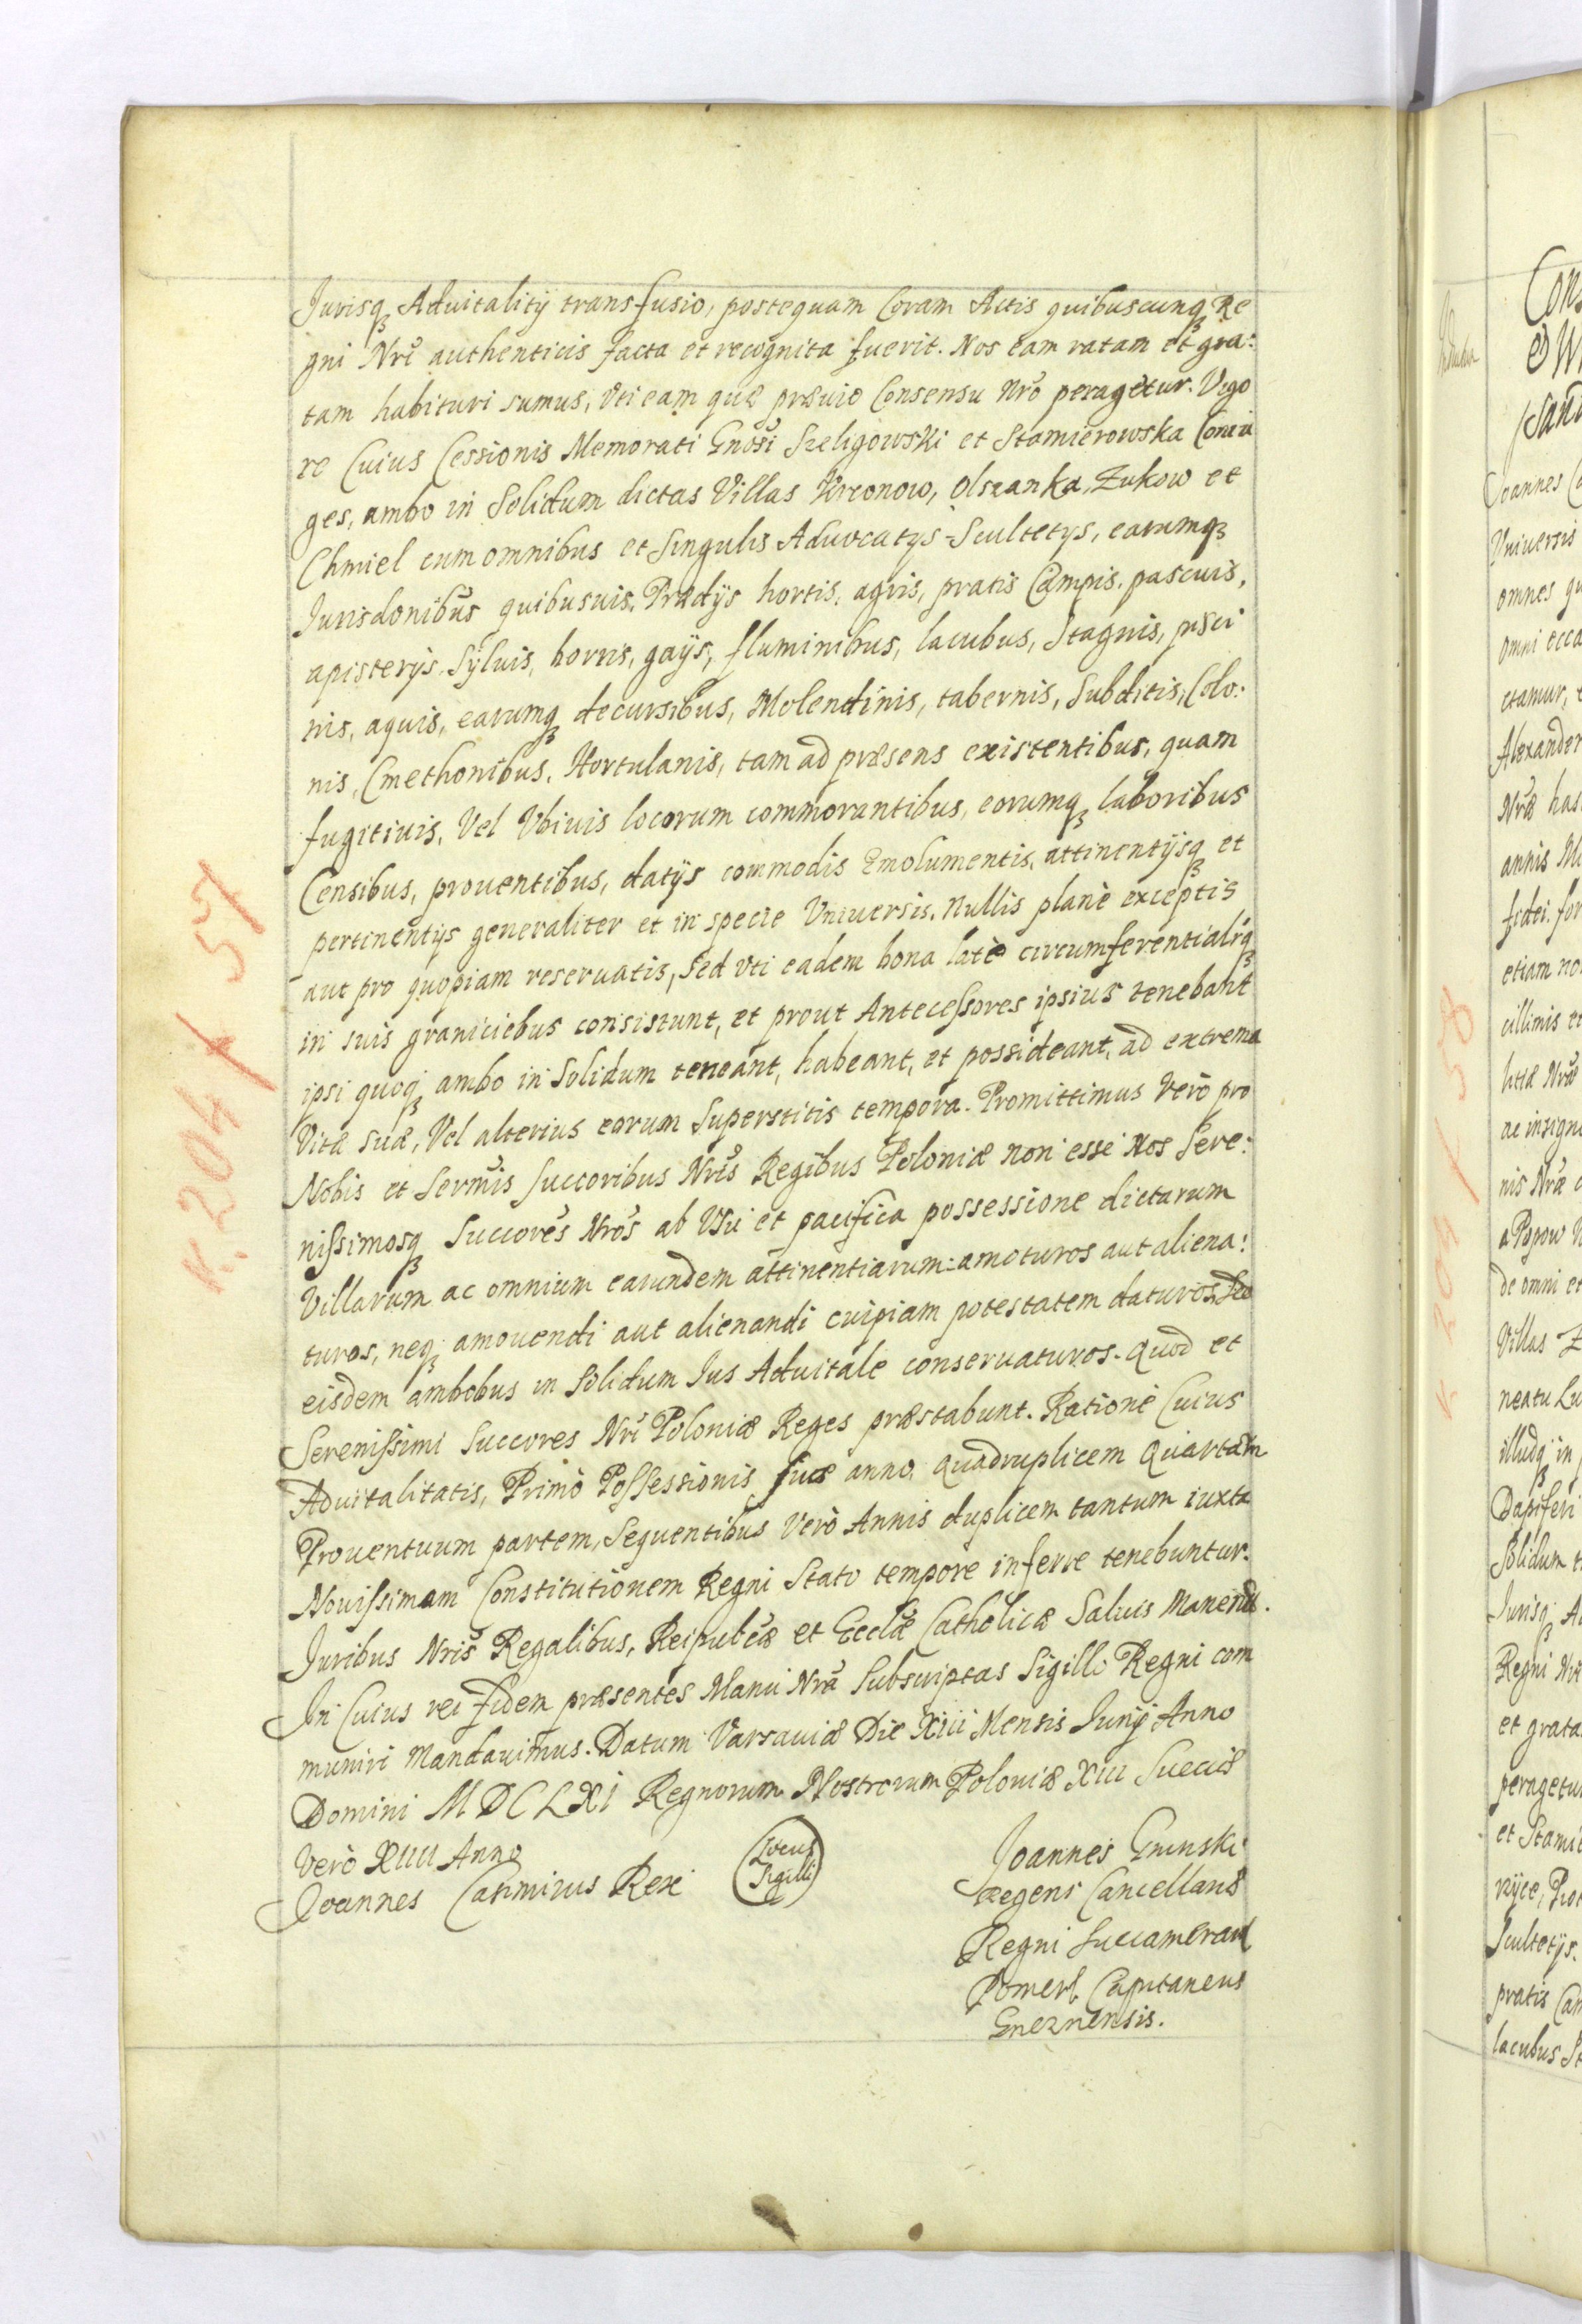 Jurisq3 Aduitalitÿ transfusio, postequam Coram Actis quibuscunq3 Re
gni Nrĩ authenticis facta et recognita fuerit. Nos eam ratam et gra:
tam habituri sumus, vti eam quæ præuio Consensu Nrõ peragetur. Vigo
re Cuius Cessionis Memorati Gnõsi Szeligowski et Stamierowska Coniu
ges, ambo in Solidum dictas Villas Krzonow, Olszanka, Zukow et
Chmiel cum omnibus et Singulis Aduocatÿs Scultetÿs, earumq3
Jurisdonibũs quibusuis, Prædÿs hortis, agris, pratis Campis, pascuis,
apisterÿs, Sÿluis, borris, gaÿs, fluminibus, lacubus, Stagnis, pisci
nis, aquis, earumq3 decursibus, Molendinis, tabernis, Subditis, Colo:
nis, Cmethonibus, Hortulanis, tam ad præsens existentibus, quam
fugitiuis, Vel Vbiuis locorum commorantibus, eorumq3 laboribus
Censibus, prouentibus, datÿs commodis Emolumentis, attinentÿsq3 et
pertinentÿs generaliter et in specie Vniuersis, nullis planè exceptis
aut pro quopiam reseruatis, Sed vti eadem bona latè circumferentialiq3
in suis graniciebus consistunt, et prout Antecessores ipsius tenebant
ipsi quoq3 ambo in Solidum teneant, habeant, et possideant, ad extrema
Vitæ suæ, Vel alterius eorum Superstitis tempora. Promittimus Verò pro
Nobis et Sermĩs Succoribus Nrĩs Regibus Poloniæ non esse Nos Sere:
nissimosq3 Succorẽs Nrõs ab Vsu et pacifica possessione dictarum
Villarum ac omnium earundem attinentiarum amoturos aut aliena:
turos, neq3 amouendi aut alienandi cuipiam potestatem daturos, Sed
eisdem ambobus in Solidum Jus Aduitale conseruaturos. Quod et
Serenissimi Succores Nrĩ Poloniæ Reges præstabunt. Ratione Cuius
Aduitalitatis, Primò Possessionis suæ anno quadruplicem Quartam
Prouentuum partem, Sequentibus Verò Annis duplicem tantum iuxta
Nouissimam Constitutionem Regni Stato tempore inferre tenebuntur.
Juribus Nrĩs Regalibus, Reipublcæ et Ecclæ Catholicæ Saluis Manend.
In Cuius rei fidem præsentes Manu Nrã Subscriptas Sigillo Regni com
muniri mandauimus. Datum Varsauiæ Die XIII Mensis Junÿ Anno
Domini MDCLXI Regnorum Nostrorum Poloniæ XIII Sueciæ
Verò XIIII Anno
Joannes Casimirus Rex
Locus
Sigilli
Joannes Gninski
Regens Cancellariæ
Regni Succamerari
Pomerl Capitaneus
Gneznensis.
K. 204 / 57
K 205 / 58